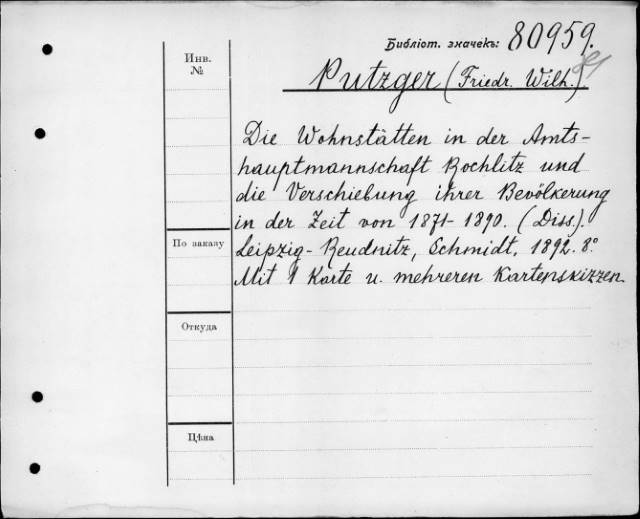 Библіот. значекъ: 80959.
Инв.
№
Putzger (Friedr. Wilh.)
Die Wohnstätten in der Amts-
hauptmannschaft Rochlitz und
die Verschiebung ihrer Bevölkerung
in der Zeit von 1871-1890. (Diss.).
По заказу
Leipzig-Reudnitz, Schmidt, 1892. 8°
Mit 1 Karte u. mehreren Kartenskizzen.
Откуда
Цѣна